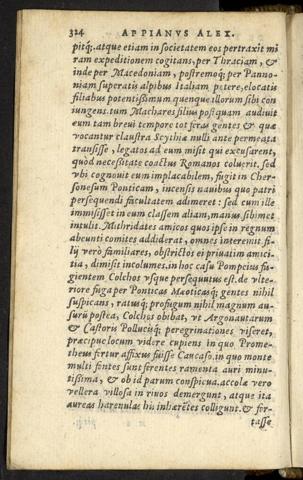 324 APPIANVS ALEX.
pitq́;.atque etiam in societatem eos pertraxit mi
ram expeditionem cogitans, per Thraciam, &
inde per Macedoniam, postremoq́; per Panno-
niam superatis alpibus Italiam petere, elocatis
filiabus potentißimum quenque illorum sibi con
iungens. tum Machares filius postquam audiuit
eum tam breui tempore tot feras gentes & quæ
vocantur claustra Scythiæ nulli ante permeata
transisse, legatos ad eum misit qui excusarent,
quòd necesitate coactus Romanos coluerit. sed
vbi cognouit eum implacabilem, fugit in Cher-
sonesum Ponticam, incensis nauibus quo patri
persequendi facultatem adimeret: sed cum ille
immisisset in eum classem aliam, manus sibimet
intulit. Mithridates amicos quos ipse in regnum
abeunti comites addiderat, omnes interemit. fi-
lij verò familiares, obstrictos ei priuatim amici-
tia, dimisit incolumes. in hoc casu Pompeius fu-
gientem Colchos vsque persequutus est. de vlte-
riore fuga per Ponticas Mæoticasq́; gentes nihil
suspicans, ratusq́; profugum nihil magnum au-
surũ postea, Colchos obibat, vt Argonautarum
& Castoris Pollucisq́; peregrinationes viseret,
præcipue locum videre cupiens in quo Prome-
theus fertur affixus fuisse Caucaso. in quo monte
multi fontes sunt ferentes ramenta auri minu-
tißima, & ob id parum conspicua. accolæ vero
vellera villosa in riuos demergunt, atque ita
aureas harenulas his inhærētes colligunt. & for-
tasse